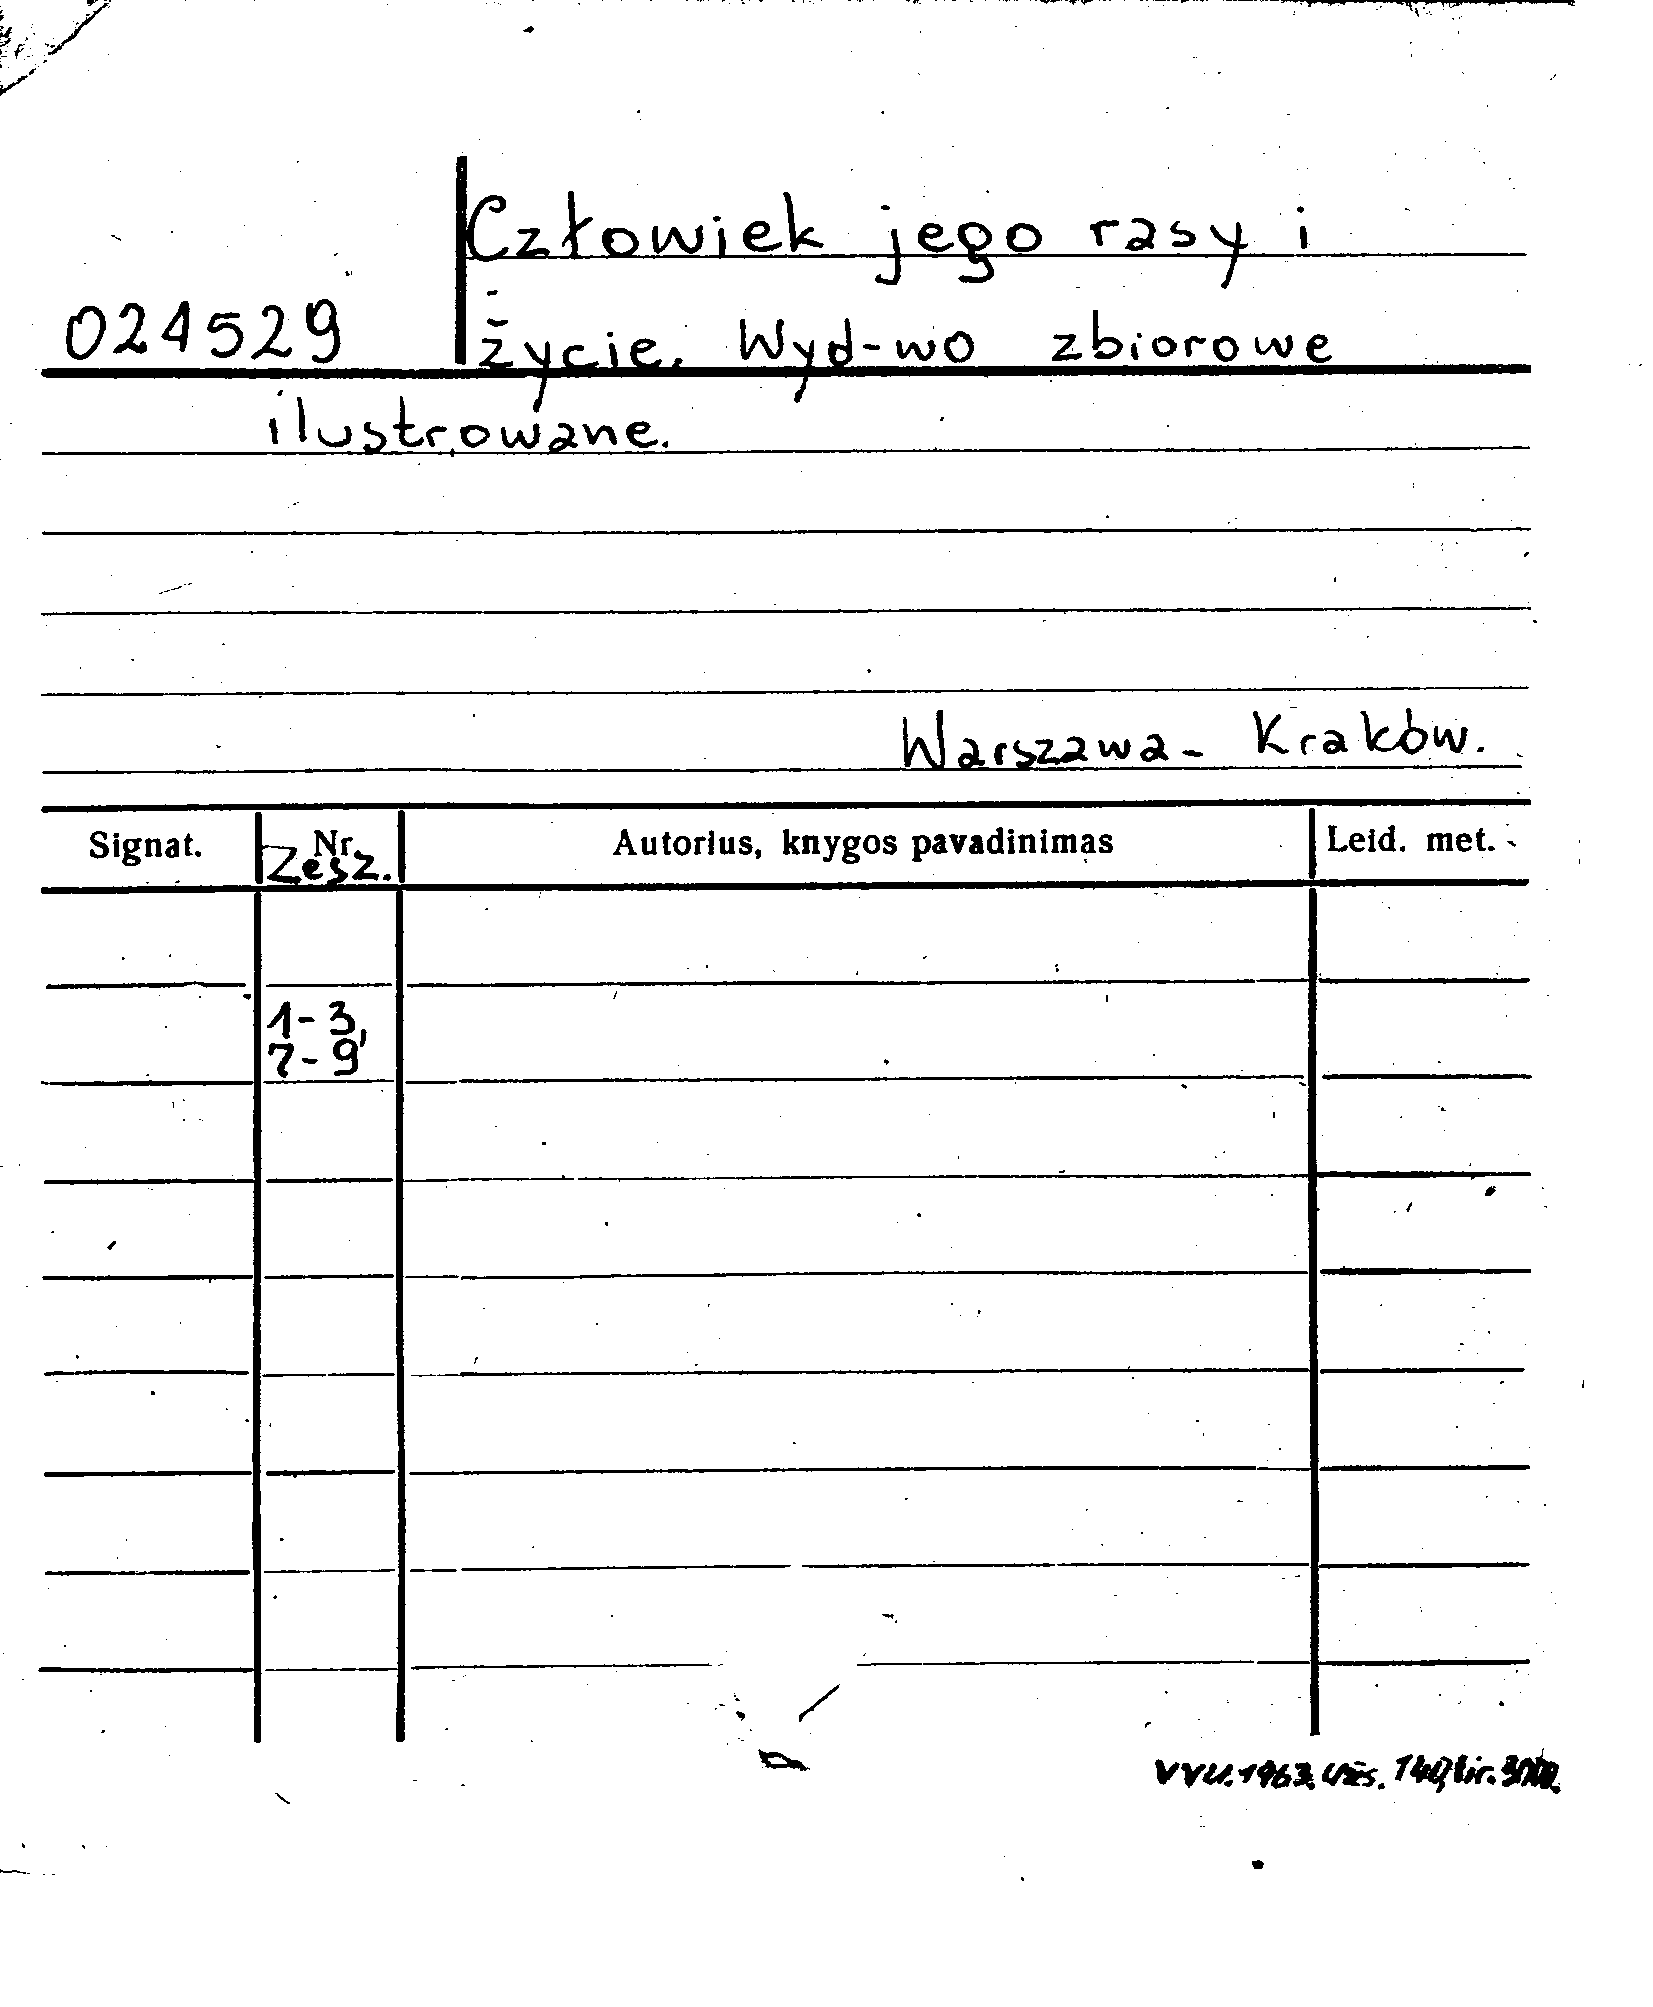 Człowiek jego rasy i
024529 życie. Wyd-wo zbiorowe
ilustrowane.
Warszawa - Kraków.
Signat. Nr. Autorius, knygos pavadinimas Leid. met.
Zesz.
1-3,
7-9
VVU. 1963. Užs. 140, tir.